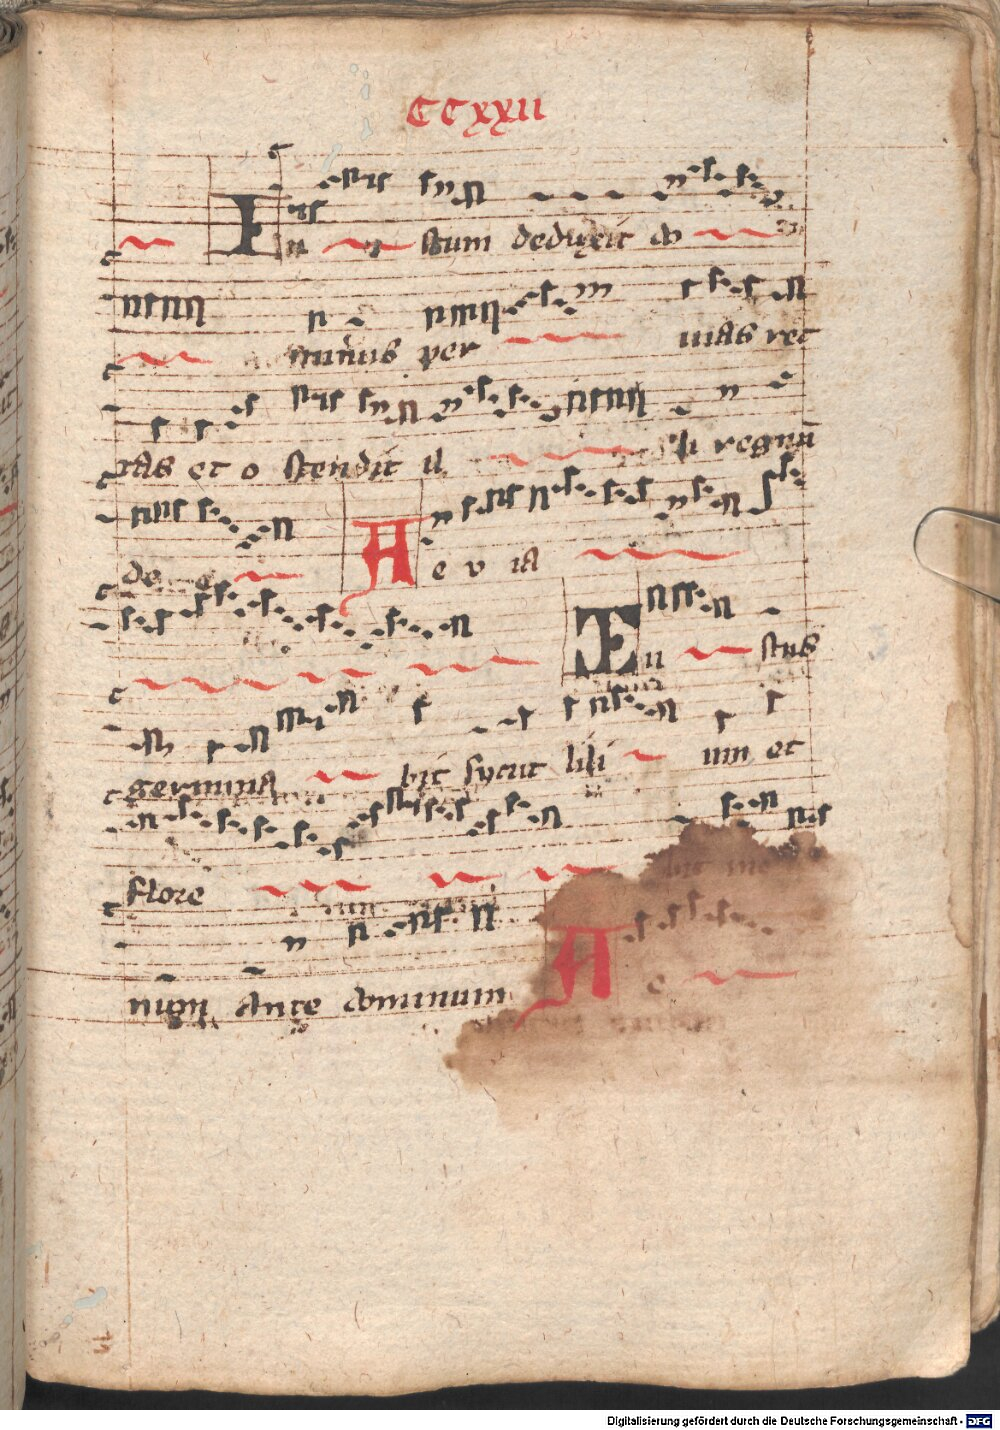 CCxxii
Iu stum deduxit do
minus per uias rec
tas et o stendit il li regnū
de e A e v ia
Iu stus
germina bit sycut lili um et
flore bit in eter
num ante dominum A e
Digitalisierung gefördert durch die Deutsche Forschungsgemeinschaft - DFG